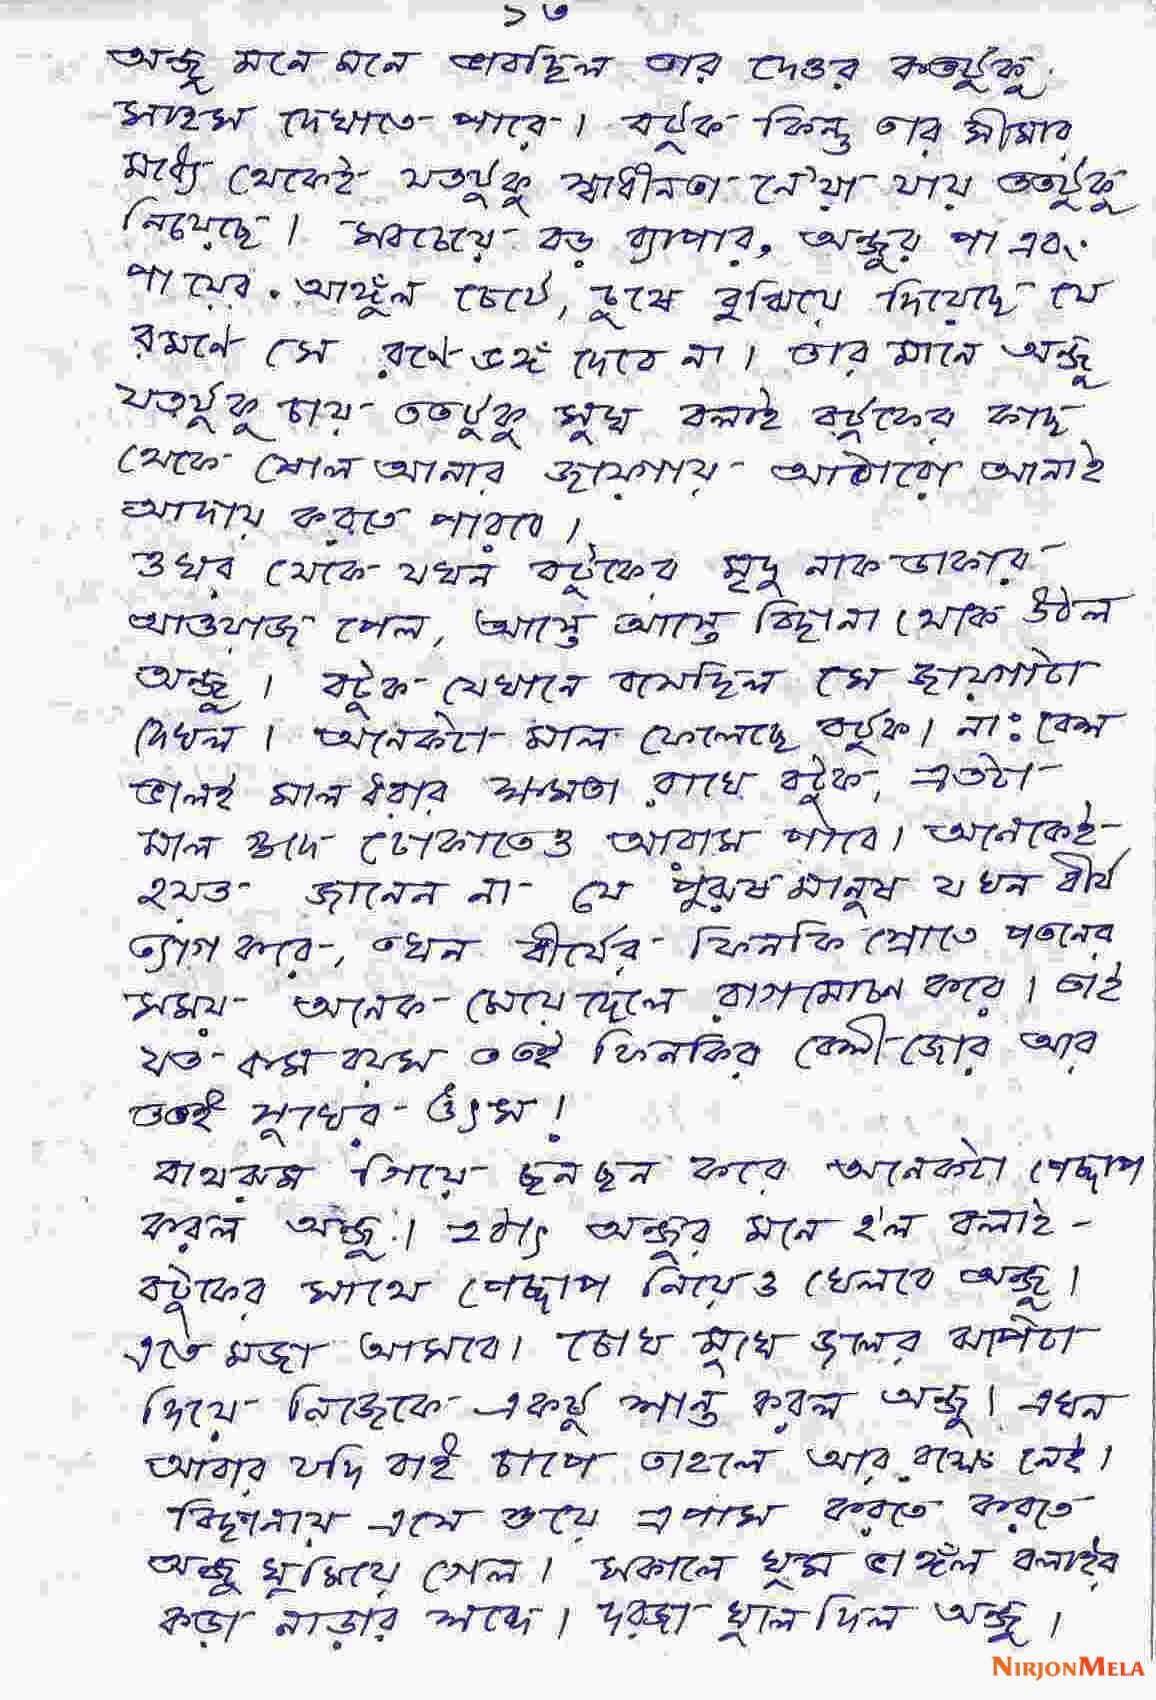 ১৩
অঞ্জু মনে মনে ভাবছিল তার দেওর কতটুকু
সাহস দেখাতে পারে। বটুক কিন্তু তার সীমার
মধ্যে থেকেই যতটুকু স্বাধীনতা নেওয়া যায় ততটুকু
নিয়েছে। সবচেয়ে বড় ব্যাপার, অঞ্জুর পা এবং
পায়ের আঙ্গুল চেটে, চুষে বুঝিয়ে দিয়েছে যে
রমণে সে রণে ভঙ্গ দেবে না। তার মানে অঞ্জু
যতটুকু চায় ততটুকু সুখ বলাই বটুকের কাছ
থেকে ষোল আনার জায়গায় আঠারো আনাই
আদায় করতে পারবে।
ওঘর থেকে যখন বটুকের মৃদু নাক ডাকার
আওয়াজ পেল, আস্তে আস্তে বিছানা থেকে উঠল
অঞ্জু। বটুক যেখানে বসেছিল সে জায়গাটা
দেখল। অনেকটা মাল ফেলেছে বটুক। নাঃ বেশ
ভালই মাল ধরার ক্ষমতা রাখে বটুক, এতটা
মাল গুদে ঢোকাতেও আরাম পাবে। অনেকেই
হয়ত জানেন না যে পুরুষ মানুষ যখন বীর্য
ত্যাগ করে, তখন বীর্যের ফিনকি স্রোতে পতনের
সময় অনেক মেয়ে রাগমোচন করে। তাই
যত কম বয়স ততই ফিনকির বেশী জোর আর
ততই সুখের উৎস।
বাথরুম গিয়ে ছনছন করে অনেকটা পেচ্ছাপ
করল অঞ্জু। হঠাৎ অঞ্জুর মনে হল বলাই-
বটুকের সাথে পেচ্ছাপ নিয়েও খেলবে অঞ্জু।
এতে মজা আসবে। চোখ মুখে জলের ঝাপটা
দিয়ে নিজেকে একটু শান্ত করল অঞ্জু। এখন
আবার যদি বাই চাপে তাহলে আর রক্ষে নেই।
বিছানায় এসে শুয়ে এপাস করতে করতে
অঞ্জু ঘুমিয়ে গেল। সকালে ঘুম ভাঙ্গল বলাইর
কড়া নাড়ার শব্দে। দরজা খুলে দিল অঞ্জু।
NIRJONMELA